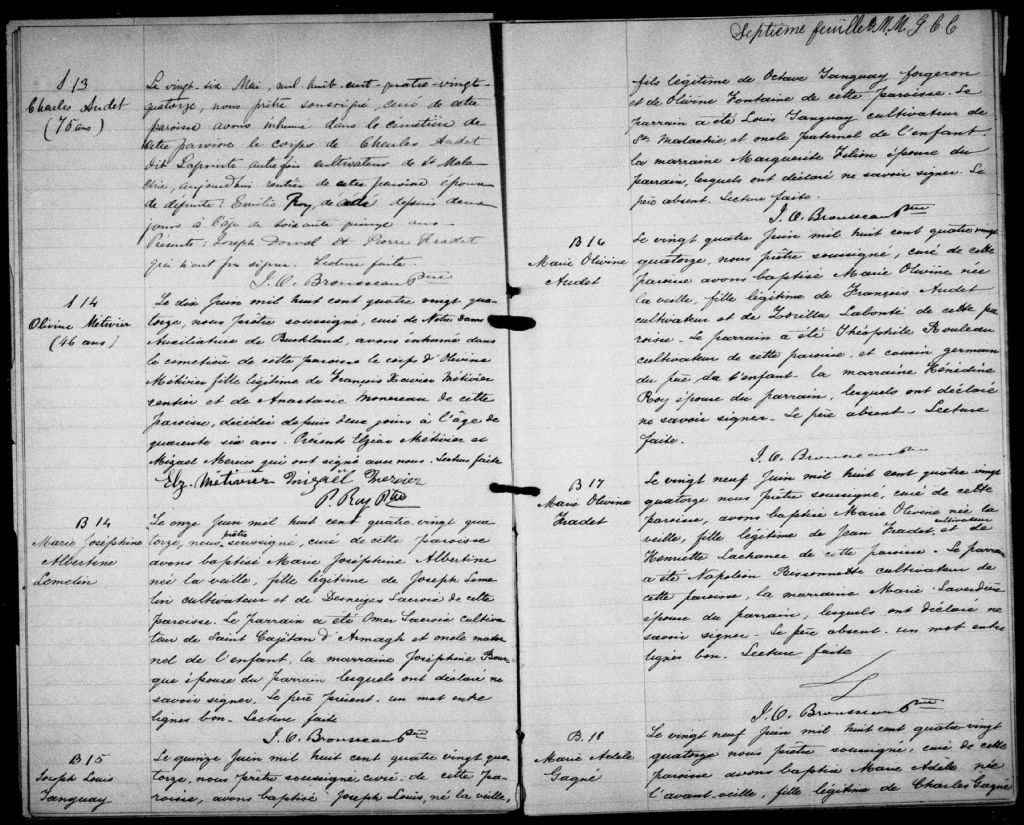 S 13
Charles Audet
(75 ans)
Le vingt-six Mai, mil huit cent quatre-vingt-
quatorze, nous prêtre soussigné, curé de cette
paroisse avons inhumé dans le cimetière de
cette paroisse le corps de Charles Audet
dit Lapointe autrefois cultivateur de St Mala-
chie, aujourd'hui rentier de cette paroisse époux
de défunte Emilie Roy, décédé depuis deux
jours à l'âge de soixante quinze ans
Présents: Joseph et Pierre Fradet
qui n'ont pu signer. Lecture faite.
J. O. Brousseau Ptre
S 14
Olivine Métivier
(46 ans)
Le dix Juin mil huit cent quatre vingt qua-
torze, nous prêtre soussigné, curé de Notre Dame
Auxiliatrice de Buckland, avons inhumé dans
le cimetière de cette paroisse le corps d'Olivine
Métivier fille légitime de François Xavier Métivier
rentier et de Anastasie Monereau de cette
paroisse, décédée depuis deux jours à l'âge de
quarente six ans - Présents Elzéar Métivier et
Mizael Mercier qui ont signé avec nous. Lecture faite
Elz. Métivier Mizaël Mercier
P. Roy Ptre
B 14
Marie Joséphine
Albertine
Lemelin
Le onze Juin mil huit cent quatre-vingt qua
torze, nous prêtre soussigné, curé de cette paroisse
avons baptisé Marie Joséphine Albertine
née la veille, fille légitime de Joseph Leme-
lin cultivateur et de Desneiges Lacroix de cette
paroisse. Le parrain a été Omer Lacroix cultiva-
teur de Saint Cajétan d'Armagh et oncle mater
nel de l'enfant, la marraine Joséphine Bour-
que épouse du parrain lesquels ont déclaré ne
savoir signer. Le père présent. un mot entre
lignes bon - Lecture faite
J. O. Brousseau Ptre
B 15
Joseph Louis
Tanguay
Le quinze Juin mil huit cent quatre vingt qua-
torze, nous prêtre soussigné, curé de cette pa-
roisse, avons baptisé Joseph Louis, né la veille,
Septième feuille B. M. M. G. C C
fils légitime de Octave Tanguay forgeron
et de Olivine Fontaine de cette paroisse. Le
parrain a été Louis Tanguay cultivateur de
St. Malachie et oncle paternel de l'enfant
la marraine Marguerite Filion épouse du
parrain, lesquels ont déclaré ne savoir signer. Le
père absent. Lecture faite.
J. O. Brousseau Ptre
B 16
Marie Olivine
Audet
Le vingt quatre Juin mil huit cent quatre vingt
quatorze, nous prêtre soussigné, curé de cette
paroisse avons baptisé Marie Olivine née
la veille, fille légitime de François Audet
cultivateur et de Zorilla Labonté de cette pa
roisse - Le parrain a été Théophile Rouleau
cultivateur de cette paroisse, et cousin germain
du père de l'enfant - la marraine Hénédine
Roy épouse du parrain, lesquels ont déclaré
ne savoir signer - Le père absent - Lecture
faite.
J. O. Brousseau Ptre
B 17
Marie Olivine
Fradet
Le vingt neuf Juin mil huit cent quatre vingt
quatorze nous prêtre soussigné, curé de cette
paroisse, avons baptisé Marie Olivine née la
veille, fille légitime de Jean Fradet cultivateur et de
Henriette Lachance de cette paroisse - Le parrain
a été Napoleon Bissonnette cultivateur de
cette paroisse, la marraine Marie Laverdière
épouse du parrain, lesquels ont déclaré ne
savoir signer - Le père absent. un mot entre
lignes bon - Lecture faite
J. O. Brousseau Ptre
B. 18
Marie Adèle
Gagné
Le vingt neuf Juin mil huit cent quatre vingt
quatorze nous prêtre soussigné, curé de cette
paroisse avons baptisé Marie Adèle née
l'avant-veille, fille légitime de Charles Gagné